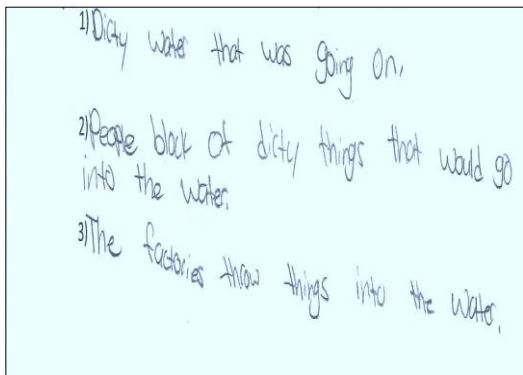 1) Dicty water that was going on.
2) People block of dicty things that would go
into the water.
3) The factories throw things into the water.